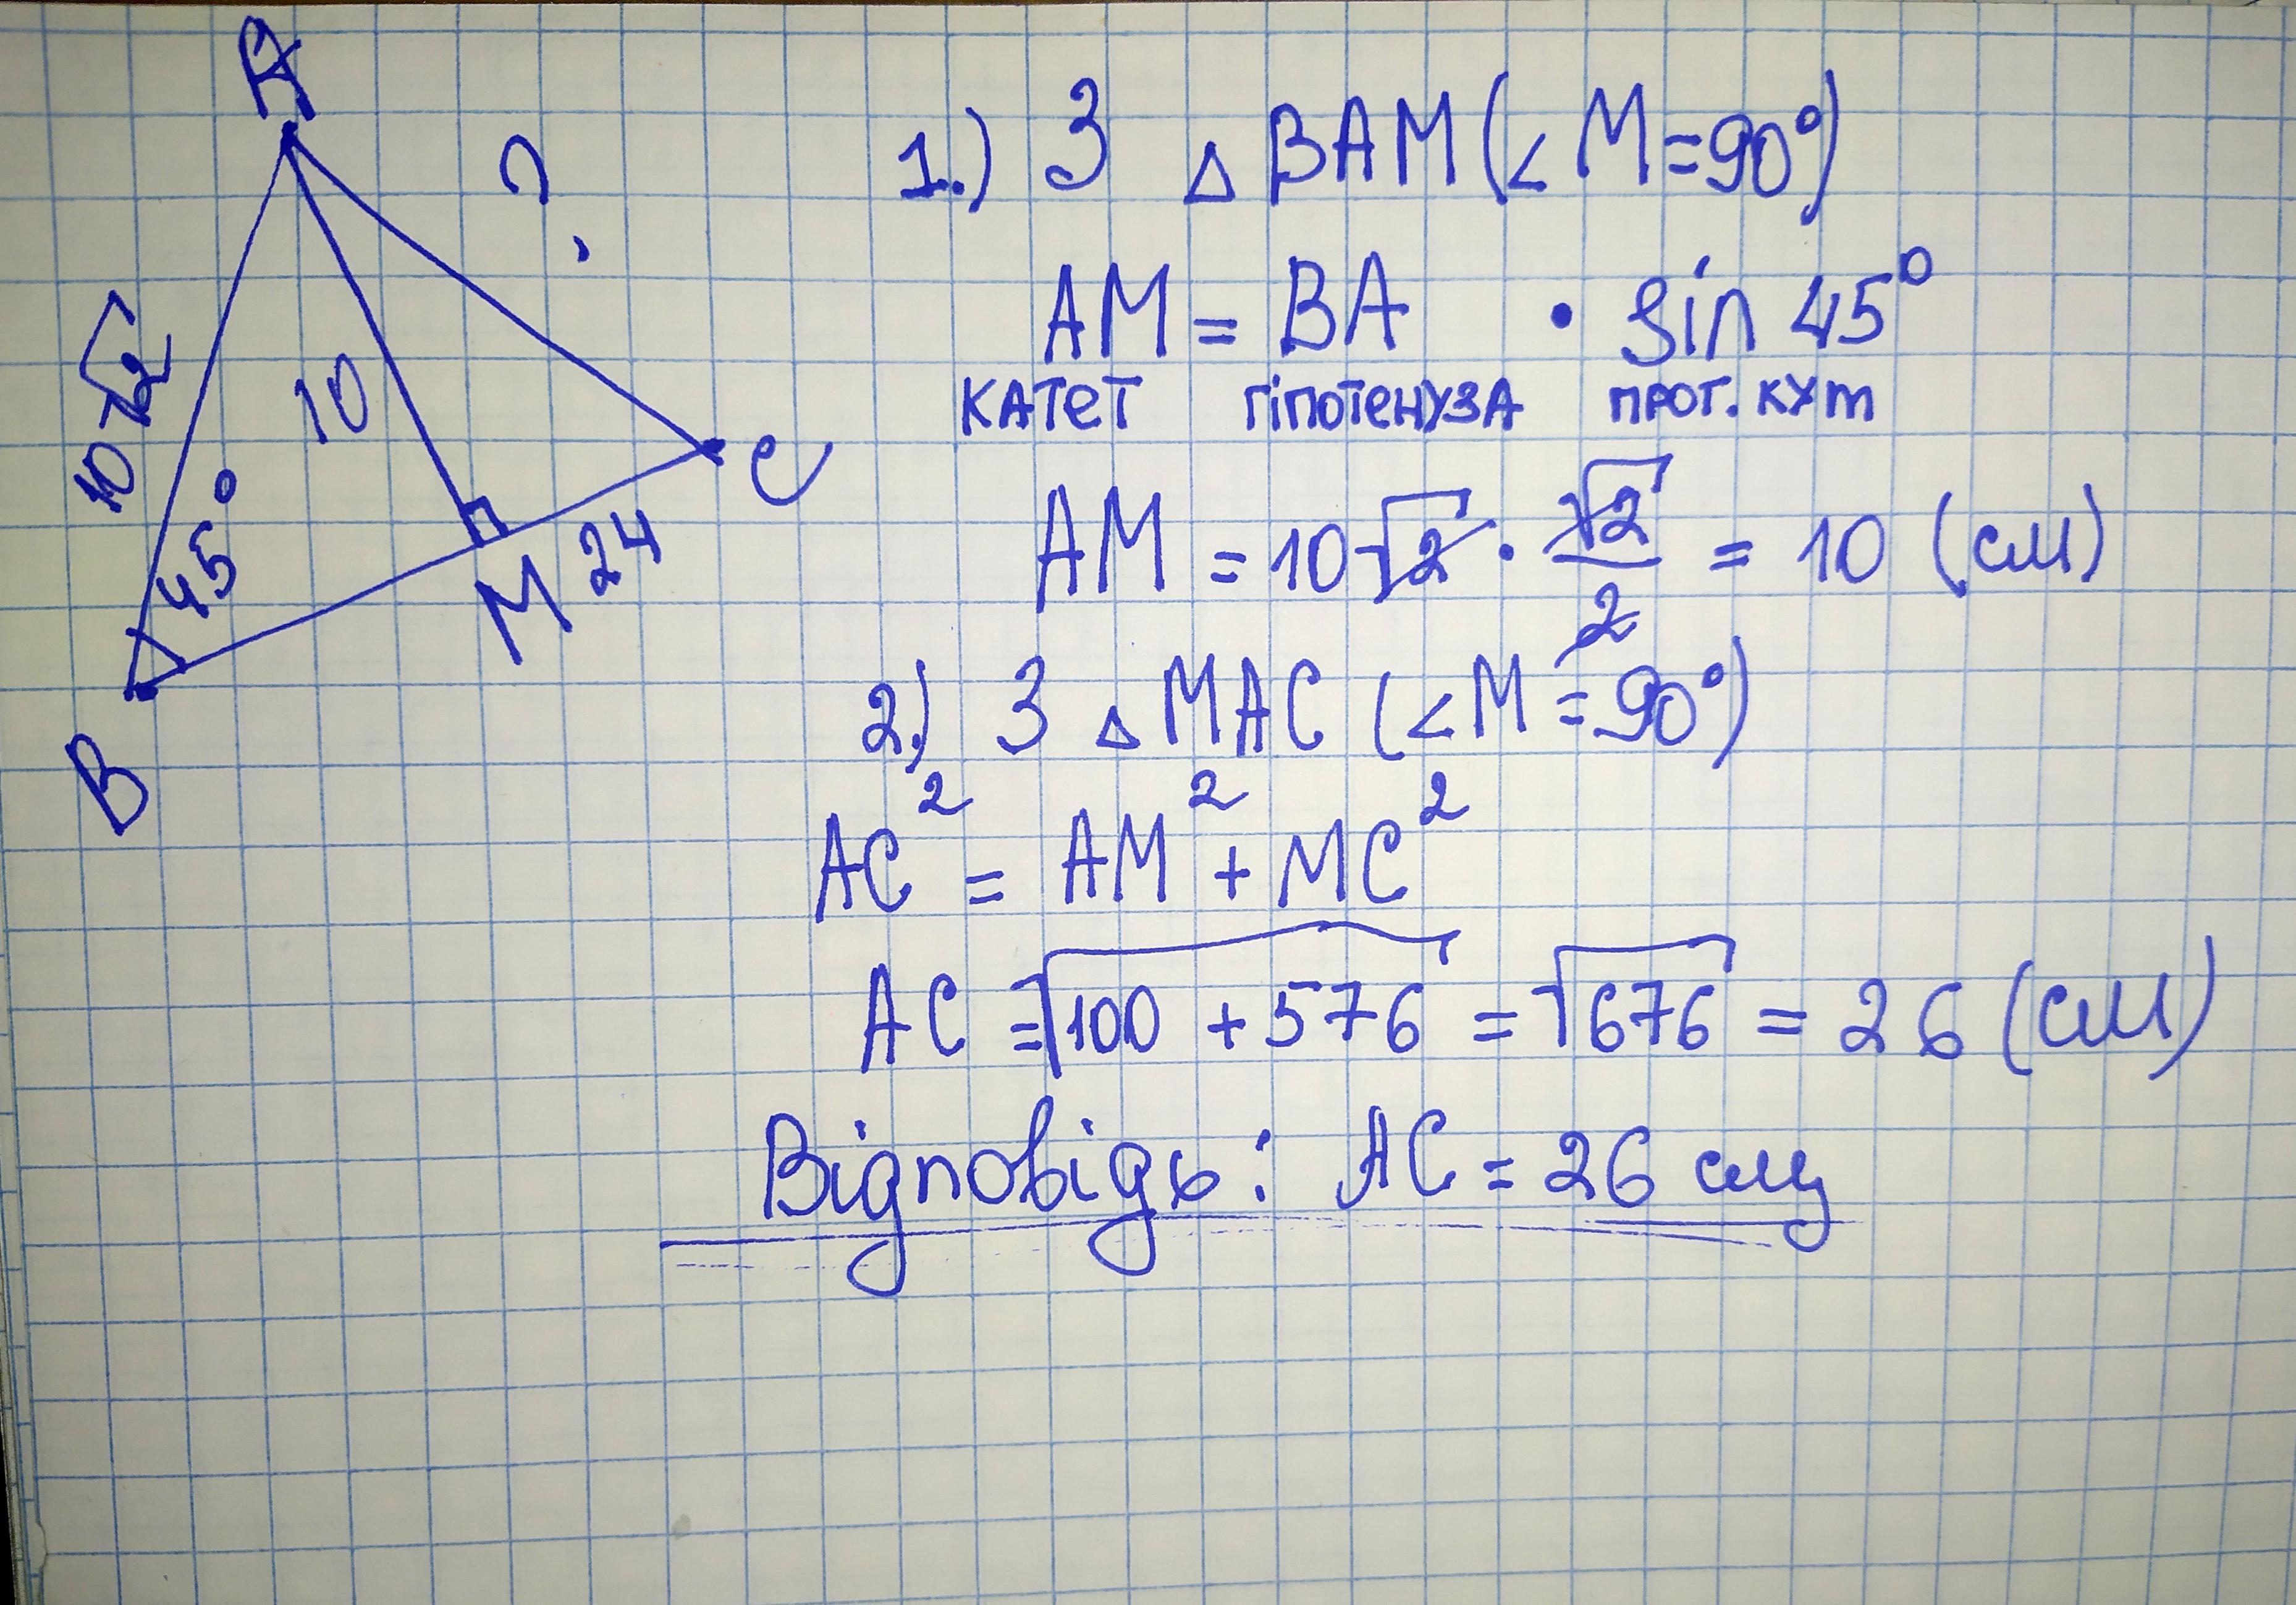 A
?
10√2
10
45°
C
M 24
B
1.) З △ BAM (∠ M = 90°)
AM = BA · sin 45°
катет гіпотенуза прот. кут
AM = 10√2 · √2/2 = 10 (см)
2.) З △ MAC (∠ M = 90°)
AC² = AM² + MC²
AC = √100 + 576 = √676 = 26 (см)
Відповідь: AC = 26 см